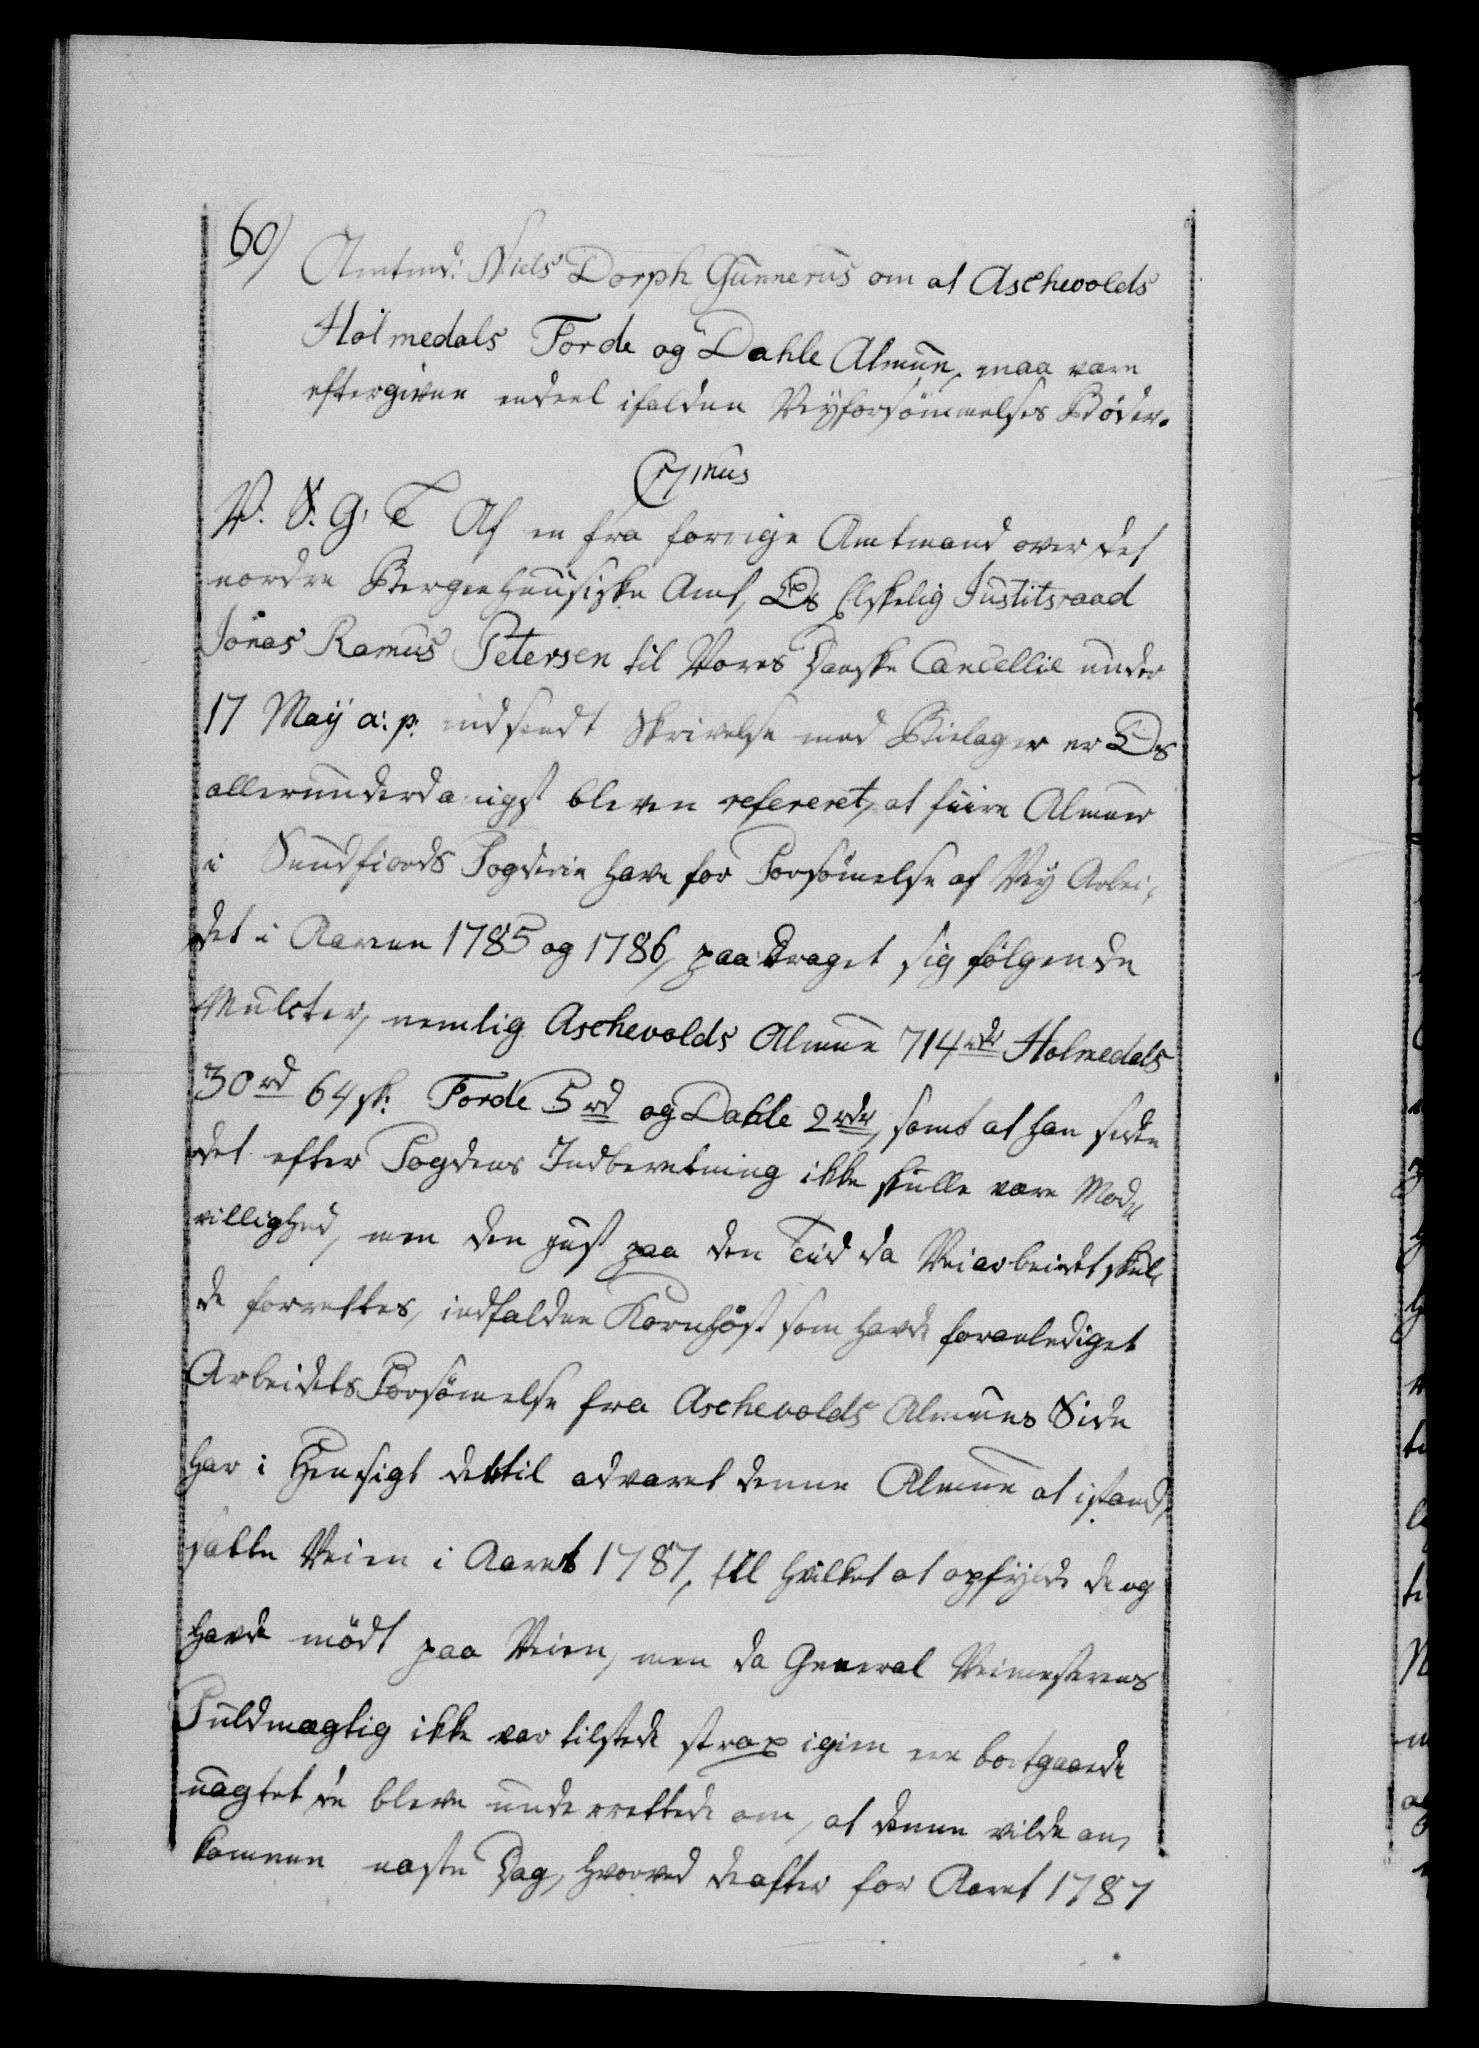 60)
Amtmd: Niels Dorph Gunnerus om at Aschevolds
Holmedals Forde og Dahle Almue, maa være
eftergiven endeel ifaldne Veyforsömmelses Bøder.
C 7mus
V. S. G. T Af en fra forrige Amtmand over det
nordre Bergenhuusiske Amt, Os Elskelig Justitsraad
Jonas Ramus Petersen til Vores Danske Cancellie under
17 May a: p: indsendt Skrivelse med Bielager er Os
allerunderdanigst bleven refereret, at fiire Almuer
i Sundfiords Fogderie have for Forsömelse af Vey Arbei,
det i Aarene 1785 og 1786, paadraget sig følgende
Mulcter, nemlig Aschevolds Almue 714 rdr Holmedals
30 rd 64 sk: Forde 5 rd og Dahle 2 rdr, samt at han siden
det efter Fogdens Indberetning ikke skulle være Mod
villighed, men den just paa den Tiid da Veiarbeidet skul,
de forrettes, indfaldne Kornhöst som havde foranlediget
Arbeidets Forsömelse fra Aschevolds Almues Side
har i Hensigt dertil advaret denne Almue at istand,
sætte Veien i Aaret 1787, till hvilket at opfylde de og
havde mödt paa Veien, men da General Veimesterens
Fuldmægtig ikke var tilstede strax igien ere bortgaaede
uagtet de bleve underrettede om, at denne vilde an,
komme næste Dag, hvorved de atter for Aaret 1787